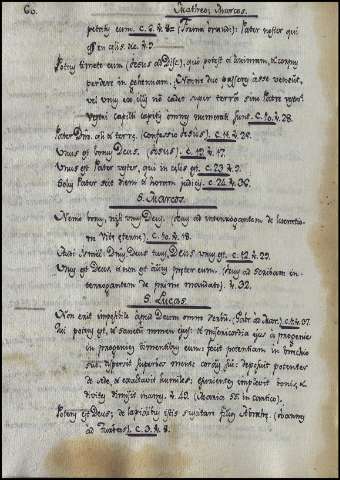 60. Matheo, Marcos.
petatis eum. c. 6. ℣. 8. & (Forma orandi): Pater noster qui
es in celis. &c. ℣. 9.
Potius timete eum (Jesus ad Disc.), qui potest & animam, & corpus
perdere in gehennam. Nonne duo passeres asse veneunt,
vel unus ex illis non cadet super terram sine Patre vestro
Vestri capilli capitis omnes numerati sunt. c. 10. ℣. 28.
Pater Dns. celi & terre. (Confessio Jesus). c. 11. ℣. 25.
Unus est bonus Deus. (Jesus). c. 19. ℣. 17.
Unus est Pater vester, qui in celis est. c. 23. ℣. 9.
Solus Pater scit diem & horam judicij. c. 24. ℣. 36.
S. Marcos.
Nemo bonus, nisi unus Deus. (Jesus ad interrogantem de
Vita eterna). c. 10. ℣. 18.
Audi Israel. Dns Deus tuus, Deus unus est. c. 12. ℣. 29.
Unus est Deus, & non est alius preter eum. (Jesus ad scribam in-
terrogantem de primo mandato). ℣. 32.
S. Lucas.
Non erit impossibile apud Deum omne verbum. (Gabr. ad Mar.) c. 1. ℣. 37.
Qui potens est, & sanctum nomen ejus: & misericordia ejus a progenie
in progenies timentibus eum: fecit potentiam in brachio
suo, dispersit superbos mente cordis sui: deposuit potentes
de sede, & exaltavit humiles: esurientes implevit bonis, &
divites dimisit inanes. ℣. 49. (Maria SS. in cantico).
Potens est Deus, de lapidibus istis suscitare filios Abrahe. (Joannes
ad Turbas). c. 3. ℣. 8.